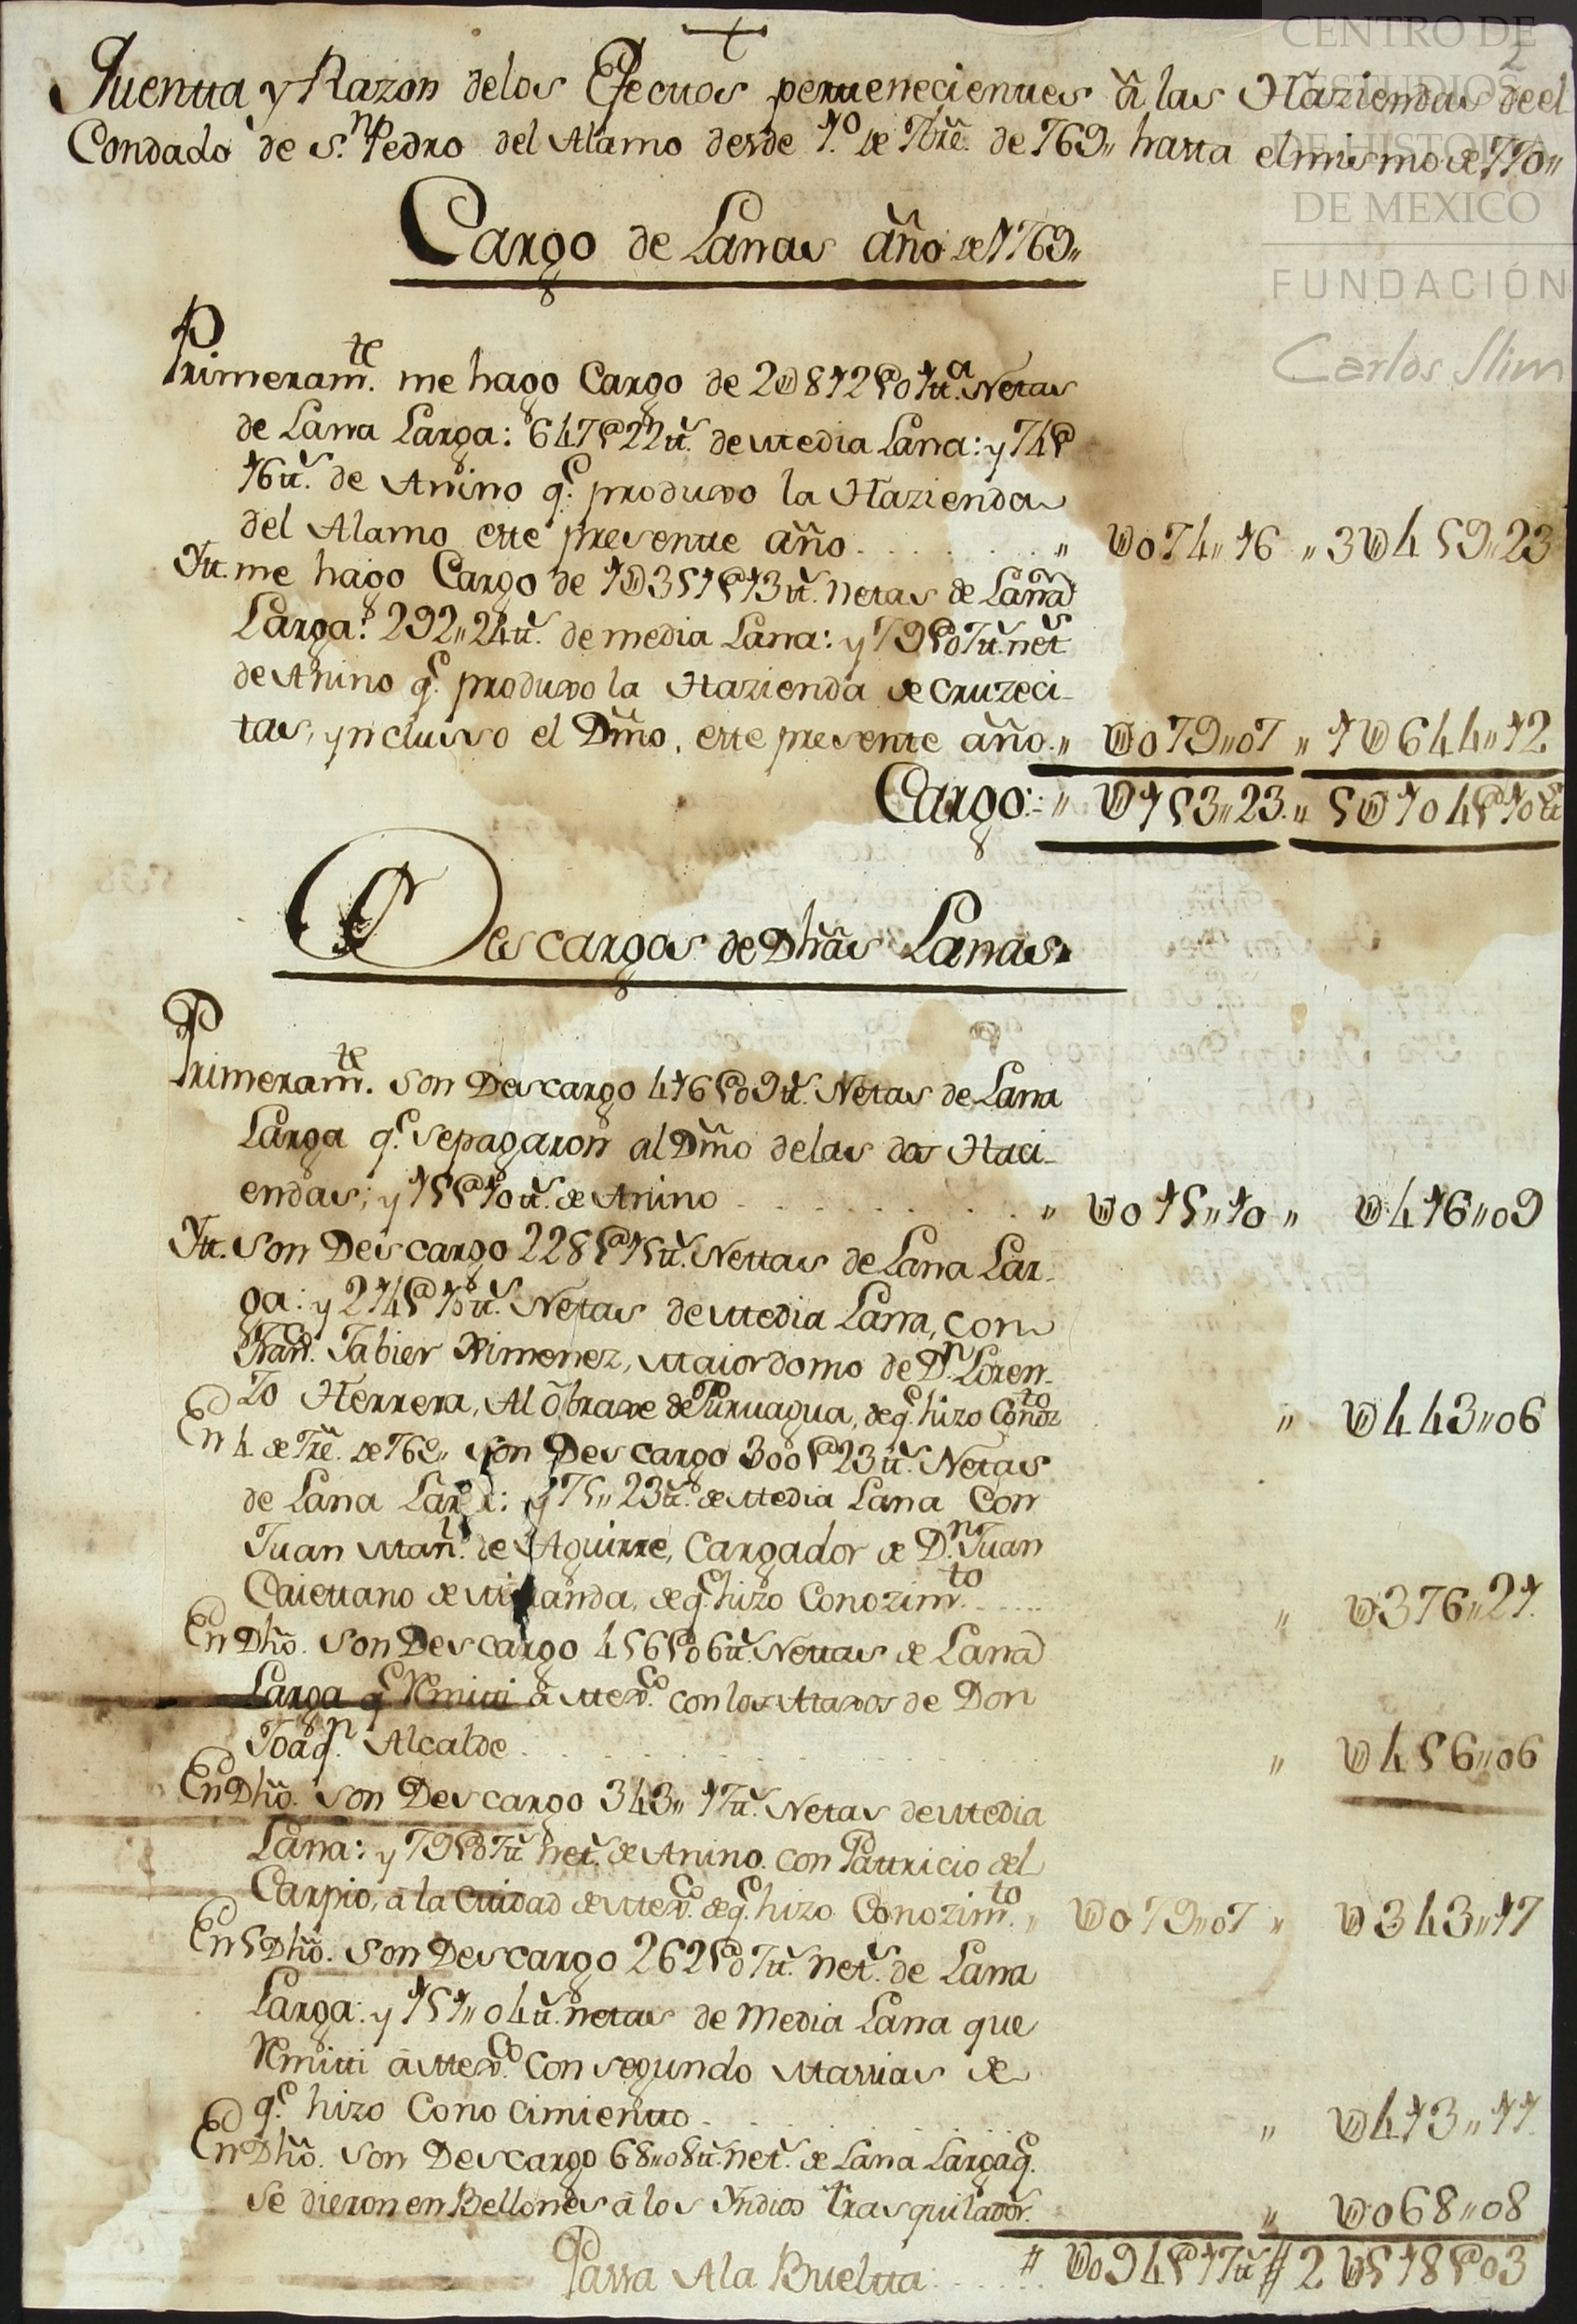 +
CENTRO DE
ESTUDIOS
DE HISTORIA
DE MEXICO
FUNDACIÓN
Carlos Slim
2
Quentta y Razon delos Efectos pertenecientes â las Haziendas de el
Condado de S.n Pedro del Alamo desde 1.o de 7bre. de 769,, hasta elmismo de 770,,
Cargo de Lanas año de 1769,,
Primeram.te me hago Cargo de 2U812@01tt.a Netas
de Lana Larga: 647@22tt.s de Media Lana: y 74@
16tt.s de Anino q.e produxo la Hazienda
del Alamo este presente año. . . . . . . . ,, U074,,16 ,, 3U459,,23
Itt. me hago Cargo de 1U351@13tt.s netas de Lana
Larga: 292,,24tt.s de media Lana: y 79@07tt.s net.s
de Anino q.e produxo la Hazienda de Cruzeci-
tas, ynclusso el Dmo, este presente año.,, U079,,07 ,, 1U644,,12
Cargo: ,, U153,,23.,, 5U104@10tt.s
Descargos de Dhas Lanas.
Primeram.te son Descargo 416@09tt.s Netas de Lana
Larga q.e sepagaron al Dmo delas dos Haci-
endas; y 15@10tt.s de Anino . . . . . . . . ,, U015,,10 ,, U416,,09
Itt. son Descargo 228@15tt.s Nettas de Lana Lar-
ga: y 214@16tt.s Netas de Media Lana, con
Fran.co Jabier Ximenez, Maiordomo de D.n Loren-
zo Herrera, Al Obraxe de Puruagua, de q.e hizo Conoz.to ,, U443,,06
En 4 de 7re. de 769,, son Descargo 300@23tt.s Netas
de Lana Larga: y 75,,23tt.s de Media Lana Con
Juan Man.l de Aguirre, Cargador de D.n Juan
Caiettano de Miranda, de q.e hizo Conozim.to . . . . . ,, U376,,21
En Dho. son Descargo 456@06tt.s Nettas de Lana
Larga q.e Remitti â Mex.co con los Ataxos de Don
Joaq.n Alcalde . . . . . . . . ,, U456,,06
En Dho. son Descargo 343,,17tt.s Netas de Media
Lana: y 79@07tt.s net.s de Anino con Pattricio del
Carpio, â la Cuidad de Mex.co de q.e hizo Conozim.to ,, U079,,07 ,, U343,,17
En 5 Dho. son Descargo 262@07tt.s net.s de Lana
Larga: y 151,,04tt.s netas de Media Lana que
Remitti â Mex.co con segundo Mattias de
q.e hizo Conocimientto . . . . . . . . ,, U413,,11
En Dho. son Descargo 68,,08tt.s net.s de Lana Larga q.e
se dieron en Bellones â los Yndios trasquilador.s ,, U068,,08
Passa Ala Bueltta: . . . . # U094@17tt.s # 2U518@03